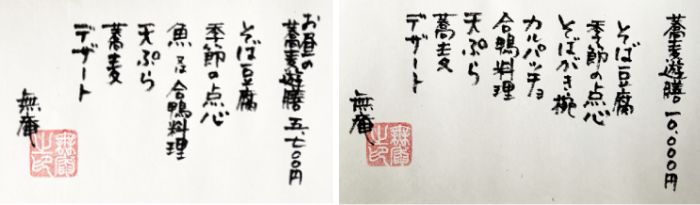 お昼の
蕎麦遊膳 五、七〇〇円
そば豆腐
季節の点心
魚又は合鴨料理
天ぷら
蕎麦
デザート
無庵
蕎麦遊膳 一〇、〇〇〇円
そば豆腐
季節の点心
そばがき椀
カルパッチョ
合鴨料理
天ぷら
蕎麦
デザート
無庵